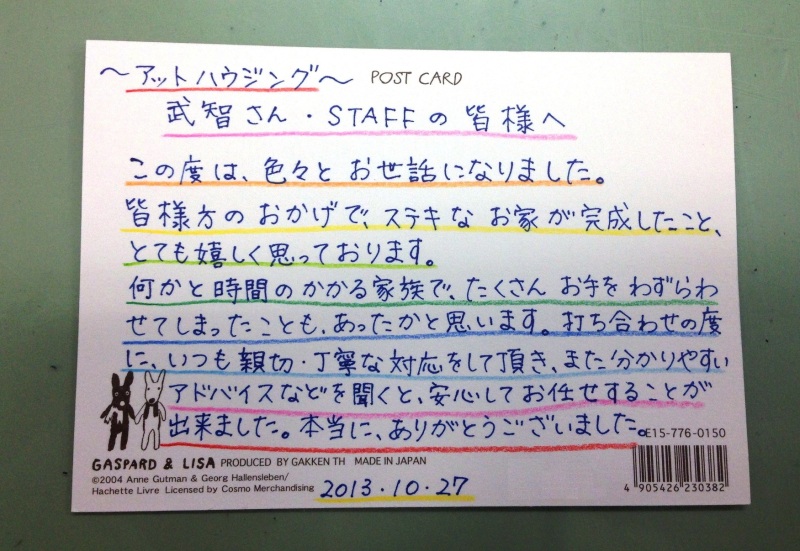 ～アットハウジング～ POST CARD
武智さん・STAFFの皆様へ
この度は、色々とお世話になりました。
皆様方のおかげで、ステキなお家が完成したこと、
とても嬉しく思っております。
何かと時間のかかる家族で、たくさんお手をわずらわ
せてしまったことも、あったかと思います。打ち合わせの度
に、いつも親切・丁寧な対応をして頂き、また分かりやすい
アドバイスなどを聞くと、安心してお任せすることが
出来ました。本当に、ありがとうございました。
E15-776-0150
GASPARD & LISA PRODUCED BY GAKKEN TH MADE IN JAPAN
©2004 Anne Gutman & Georg Hallensleben/
Hachette Livre Licensed by Cosmo Merchandising
2013.10.27
4 905426 230382